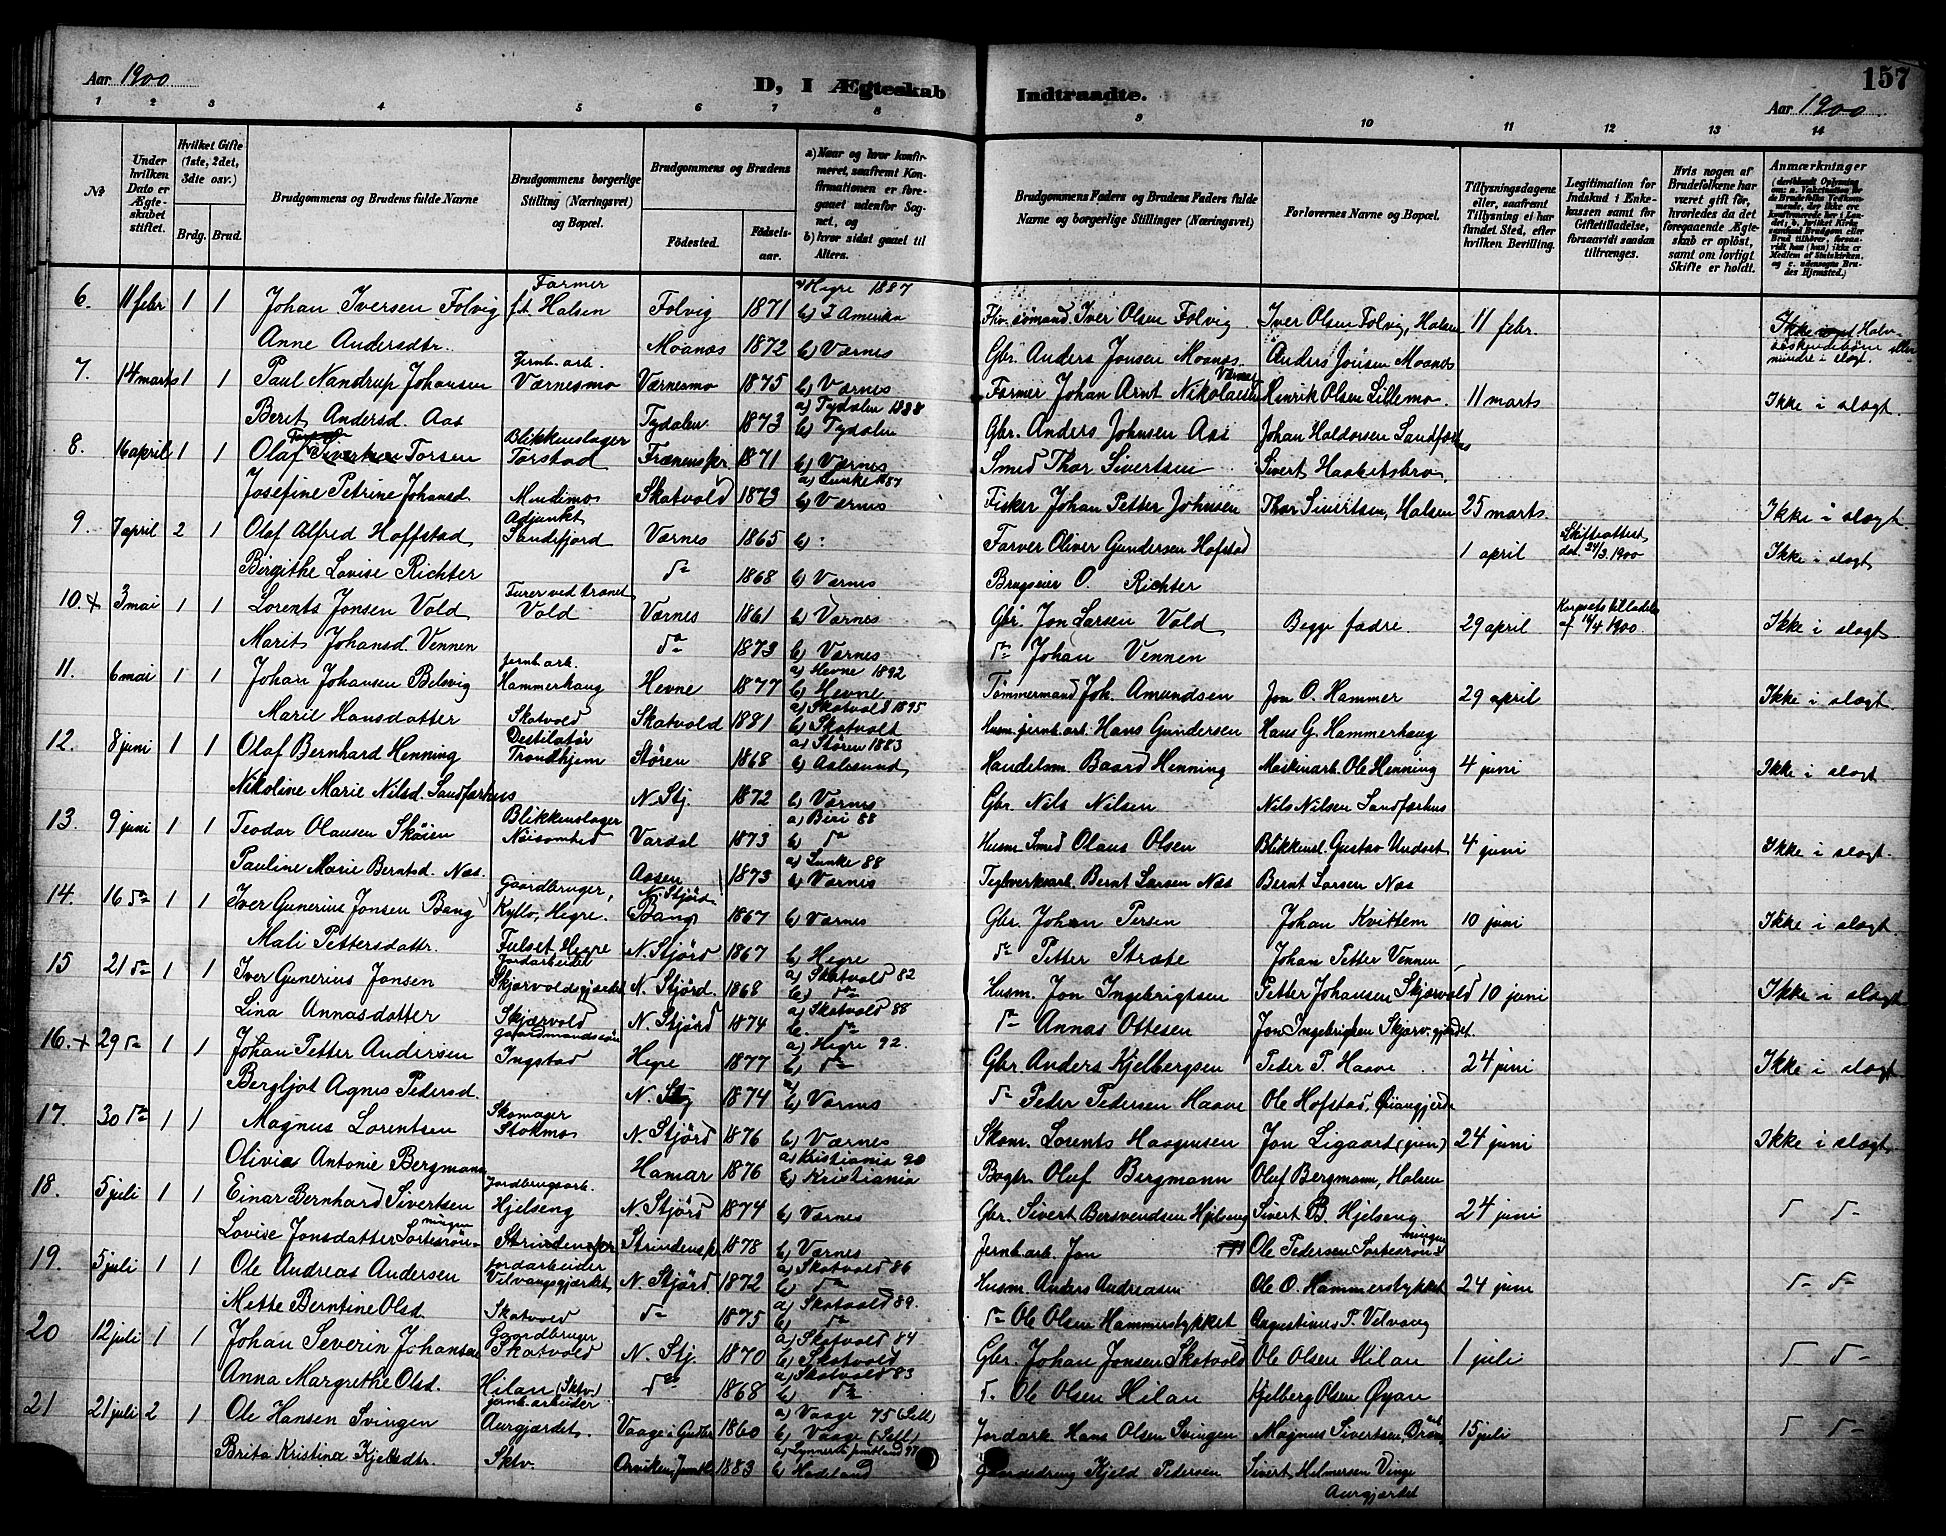 Aar 1900
D, I Ægteskab
Indtraadte.
157
Aar 1900
1 2 3 4 5 6 7 8 9 10 11 12 13 14
No
Under hvilken Dato er Ægteskabet stiftet.
Hvilket Gifte (1ste, 2det, 3die osv.)
Brdg. Brud.
Brudgommens og Brudens fulde Navne
Brudgommens borgerlige Stilling (Næringsvei) og Bopæl.
Brudgommens og Brudens
Fødested. Fødselsaar.
a) Naar og hvor konfirmeret, saafremt Konfirmationen er foregaaet udenfor Sognet, og
b) hvor sidst gaaet til Alters.
Brudgommens Faders og Brudens Faders fulde Navne og borgerlige Stillinger (Næringsvei)
Forlovernes Navne og Bopæl.
Tillysningsdagene eller, saafremt Tillysning ei har fundet Sted, efter hvilken Bevilling.
Legitimation for Indskud i Enkekassen samt for Giftetilladelse, forsaavidt saadan tiltrænges.
Hvis nogen af Brudefolkene har været gift før, hvorledes da det foregaaende Ægteskab er opløst, samt om lovligt Skifte er holdt.
Anmærkninger
6. 11 febr 1 1 Johan Iversen Folvig Farmer f.t. Halsen Folvig 1871 a) Hegre 1887 b) I Amerika Iver Olsen Folvig Iver Olsen Folvig, Halsen 11 febr. Ikke Halvsøskendebørn eller mindre i slægt.
Anne Andersdtr. Moanæs 1872 b) Værnes Gbr. Anders Jonsen Moanæs Anders Jonsen Moanæs
7. 14 marts 1 1 Paul Nandrup Johansen Jernb. arb. Værnesmo Værnesmo 1875 b) Værnes Farmer Johan Arnt Nikolaisen Værnes Henrik Olsen Lillemo 11 marts Ikke i slægt.
Beret Andersd. Aas Tydalen 1873 a) Tydalen 1888 b) Tydalen Gbr. Anders Johnsen Aas Johan Haldorsen Sandfærhus
8. 16 april 1 1 Olaf Torsen Blikkenslager Torstad Frænens pr 1871 b) Værnes Smed Thor Sivertsen Sivert Haaketsbro
Josefine Petrine Johansd. Mudimo Skatvold 1873 a) Lunke 1887 b) Værnes Fisker Johan Petter Johnsen Thor Sivertsen, Halsen 25 marts. Ikke i slægt.
9. 7 april 2 1 Olaf Alfred Hoffstad Adjunkt Sandefjord Værnes 1865 b) Farver Oliver Gundersen Hofstad 1 april Skifteattest dat. 24/3 1900 Ikke i slægt
Birgithe Lovise Richter do 1868 b) Værnes Brugseier O. Richter
10. + 3 mai 1 1 Lorents Jonsen Vold Furer ved trænet Vold Værnes 1861 b) Værnes Gbr. Jon Larsen Vold Begge fædre. 29 april Korpsets tilladelse af 17/4 1900. Ikke i slægt.
Marit Johansd. Vennen do 1873 b) Værnes do Johan Vennen
11. 6 mai 1 1 Johan Johansen Belsvig Jernb. arb. Hammerhaug Hevne 1877 a) Hevne 1892 b) Hevne Tømmermand Joh. Amundsen Jon O. Hammer 29 april Ikke i slægt.
Marie Hansdatter Skatvold Skatvold 1881 a) Skatvold 1895 b) Skatvolt Husm. jernb. arb. Hans Gundersen Hans G. Hammerhaug
12. 8 juni 1 1 Olaf Bernhard Henning Destilatør Trondhjem Støren 1868 a) Støren 1883 b) Aalesund Handelsm. Baard Henning Maskinarb. Ole Henning 4 juni Ikke i slægt
Nikoline Marie Nilsd. Sandfærhus N. Stj. 1872 b) Værnes Gbr. Nils Nilsen Nils Nilsen Sandfærhus
13. 9 juni 1 1 Teodor Olausen Skøien Blikkenslager Nøisomhed Vardal 1873 a) Biri 88 b) do Husm. Smed Olaus Olsen Blikkensl. Gustav Undset 4 juni Ikke i slægt.
Pauline Marie Berntsd. Næs Aasen 1873 a) Lunke 88 b) Værnes Teglverksarb. Bernt Larsen Næs Bernt Larsen Næs
14. 16 do 1 1 Iver Gunerius Jonsen Bang Gaardbruger, Kyllo, Hegre. N. Stjørd. Bang 1867 b) Værnes Gbr. Johan Persen Johan Kvittem 10 juni Ikke i slægt.
Mali Pettersdattr. Fulset Hegre N. Stjørd 1867 b) Hegre do Petter Stræte Johan Petter Vennen
15 21 do 1 1 Iver Gunerius Jonsen Jordarbeider Skjærvoldsgjærdet N. Stjørd. 1868 a) Skatvold 82 b) do Husm. Jon Ingebrigtsen Petter Johansen Skjærvold 10 juni Ikke i slægt
Lina Annasdatter Skjærvold N. Stjørd 1874 a) Skatvold 88 b. do do Annas Ottesen Jon Ingebrigtsen Skjærv.gjærdet.
16. + 29 do 1 1 Johan Petter Andersen Gaardmandssøn Ingstad Hegre 1877 a) Hegre 92. b) do Gbr. Anders Kjelbergsen Peder P. Haave 24 juni Ikke i slægt
Bergljot Agnes Pedersd. N. Stj 1874 a) b) Værnes do Peder Pedersen Haave Ole Hofstad, Øiangjerde
17. 30 do 1 1 Magnus Lorentsen Skomager Stokmo N. Stjørd 1876 b) Værnes Skom. Lorents Haagensen Jon Ligaard (jun) 24 juni Ikke i slægt
Olivia Antonie Bergmann Hamar 1876 a) Kristiania 90 b) Kristiania Bogtr. Oluf Bergmann Oluf Bergmann, Halsen
18. 5 juli 1 1 Einar Bernhard Sivertsen Jordbrugsarb. Hjelseng N. Stjørd 1874 b) Værnes Gbr. Sivert Bersvendsen Hjelseng Sivert B. Hjelseng 24 juni do do
Lovise Jonsdatter Strindens pr Strindens pr 1878 b) Værnes Jernb. arb. Jon Ole Pedersen
19. 5 juli 1 1 Ole Andreas Andersen Jordarbeider Velvangsgjærdet N. Stjørd. 1872 a) Skatvold 86 b) do Husm. Anders Andreasen Ole O. Hammerstykket 24 juni do do
Mette Berntine Olsd. Skatvold do 1875 a) Skatvold 89. b) do do Ole Olsen Hammerstykket Augustinus P. Velvang
20 12 juli 1 1 Johan Severin Johansen Gaardbruger Skatvold N. Stj. 1870 a) Skatvold 84 b) Skatvold Gbr. Johan Jonsen Skatvold Ole Olsen Hilan 1 juli do do
Anna Margrethe Olsd. Hilan (Sktv.) do 1868 a) Skatvold 83 b) do do Ole Olsen Hilan Kjelberg Olsen Øyan
21 21 juli 2 1 Ole Hansen Svingen jernb. arbeider Aurgjærdet. Vaage i Gudbr. 1860 a) Vaage 75 (Sell) b) Vaage (Sell) Jordarb. Hans Olsen Svingen Magnus Sivertsen, 15 juli do do
Brita Kristina Kjelsdtr. Sktv. 1883 b) Hadeland Kjeld Pedersen Sivert Helmersen Vinge Aurgjærdet